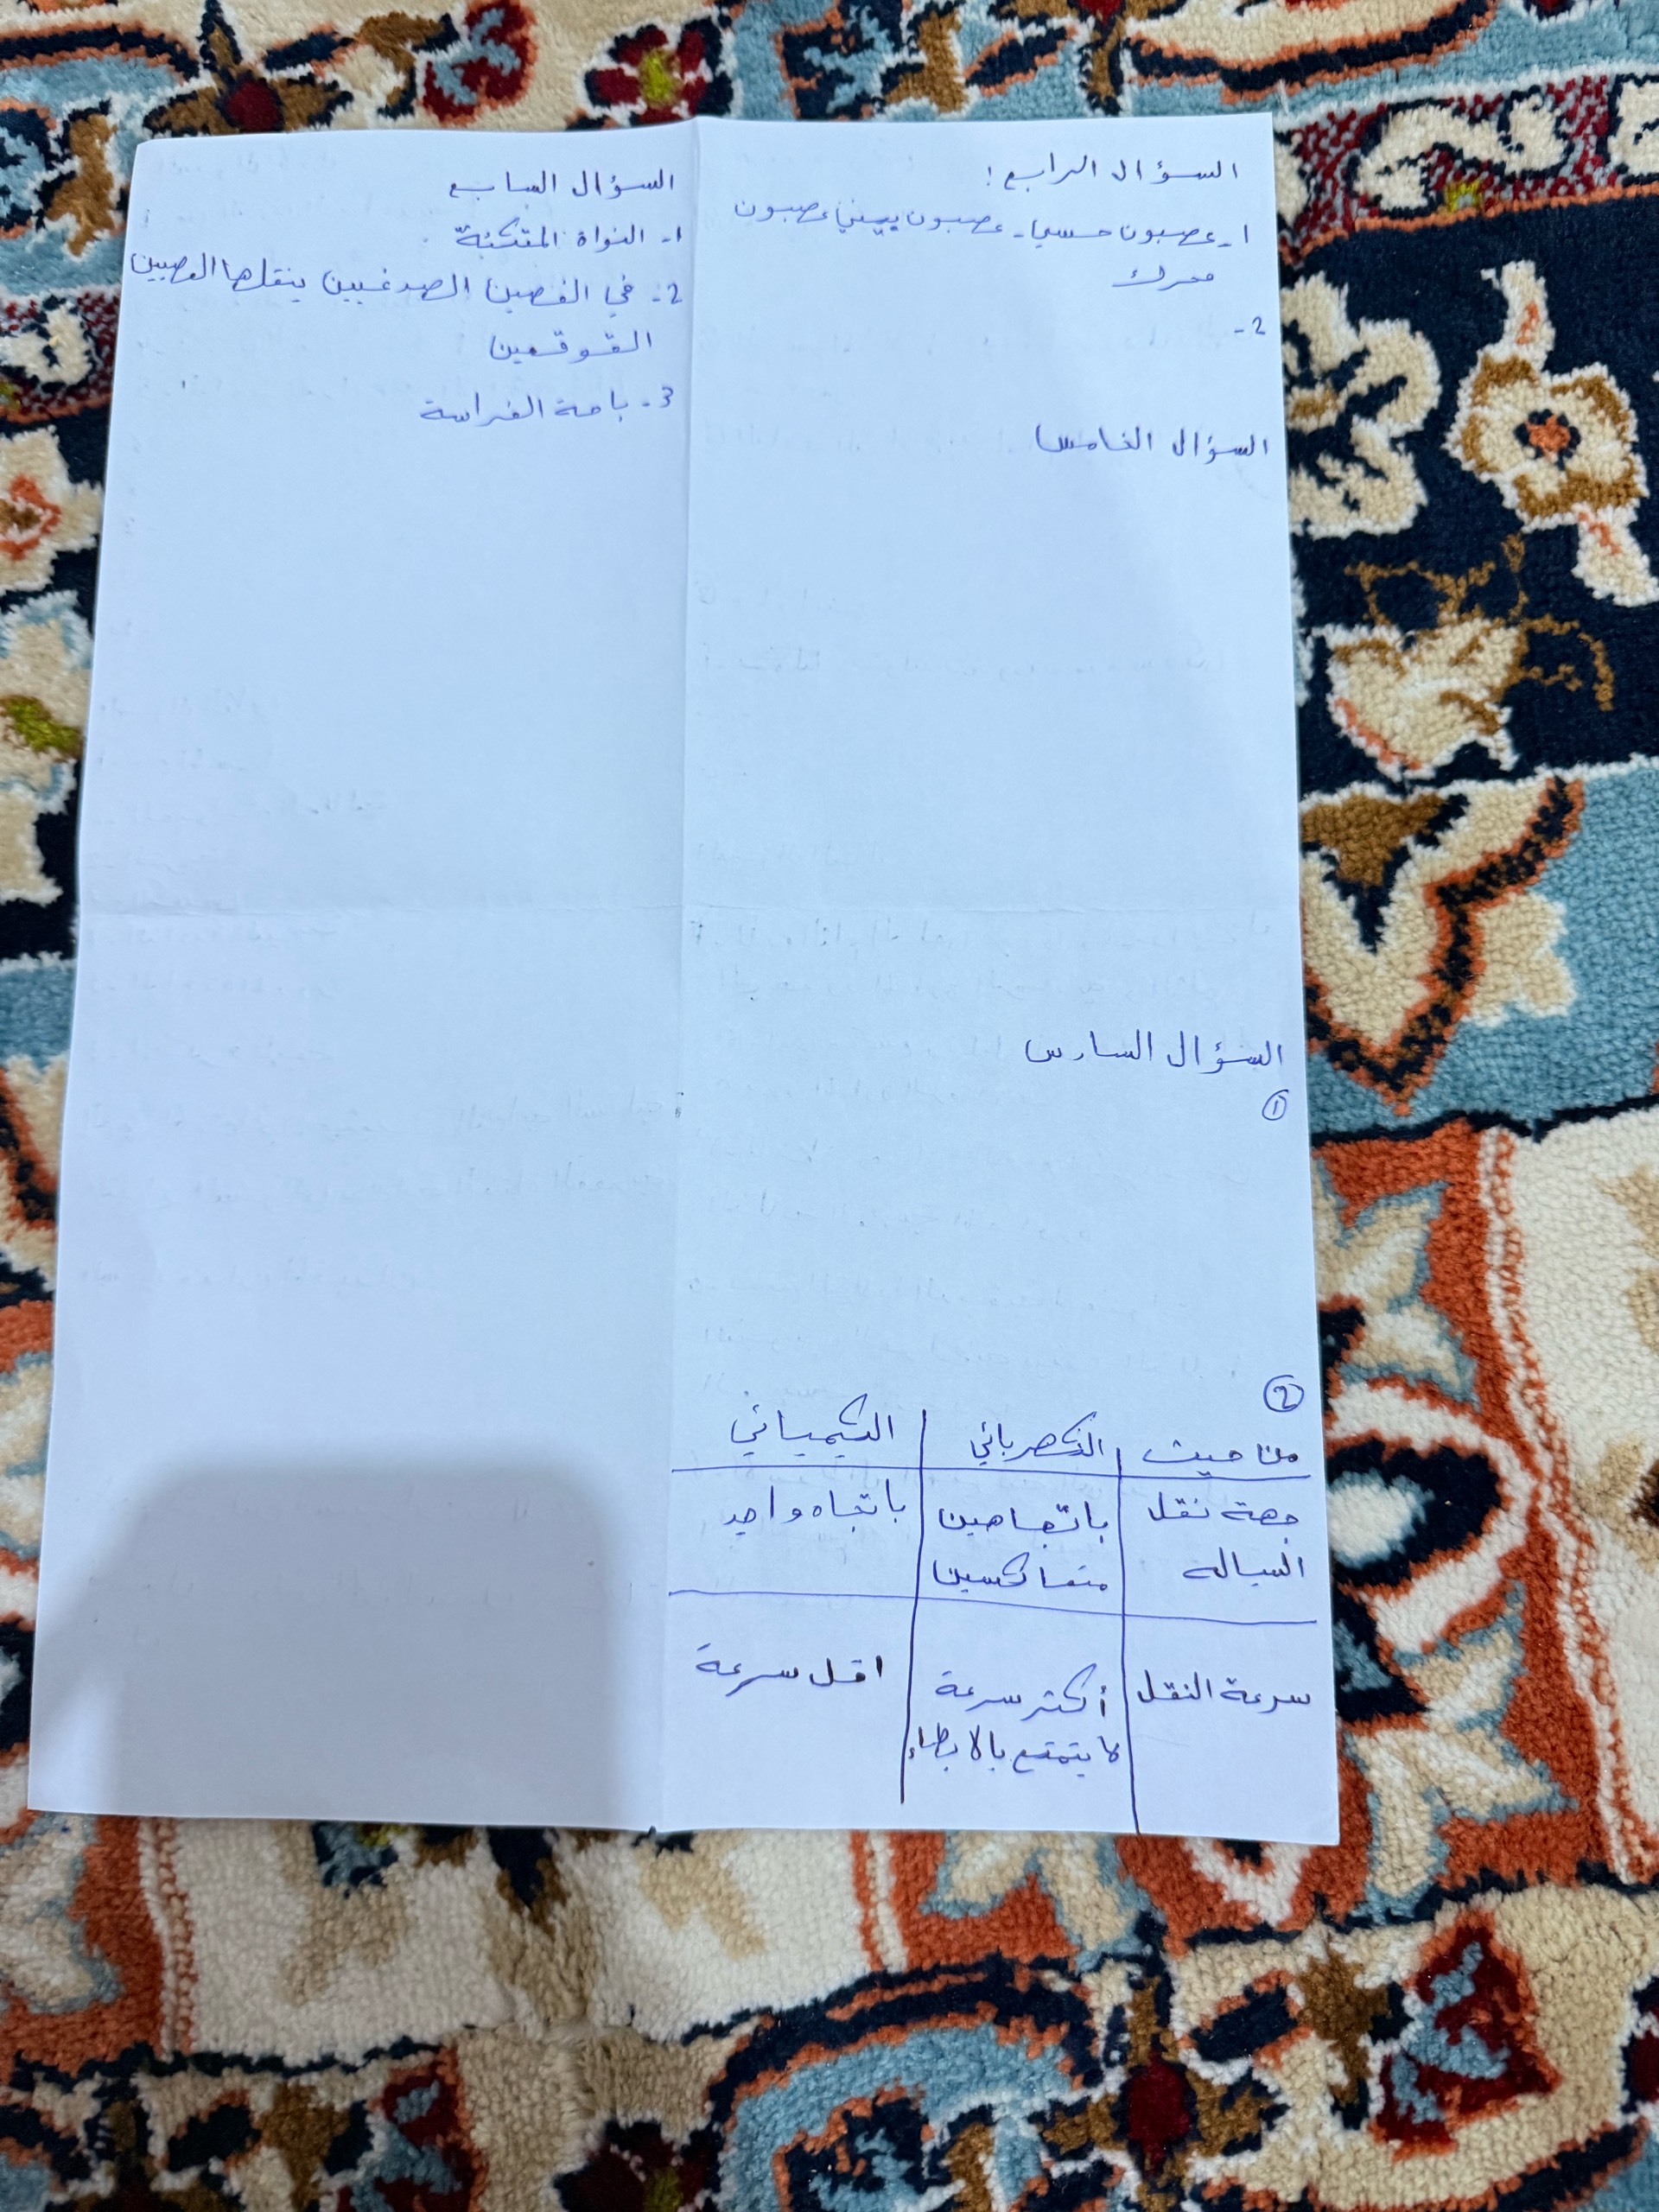 السؤال الرابع :
1- عصبون حسي - عصبون بيني عصبون
محرك
2-
السؤال الخامس
السؤال السادس
①
②
من حيث | الكهربائي | الكيميائي
جهة نقل | باتجاهين | باتجاه واحد
السيالة | متعاكسين
سرعة النقل | أكثر سرعة | اقل سرعة
لا يتمتع بالابطاء
السؤال السابع
1- النواة المتكئة
2- في الفصين الصدغيين ينقلها العصبين
القوقعين
3- باحة الفراسة